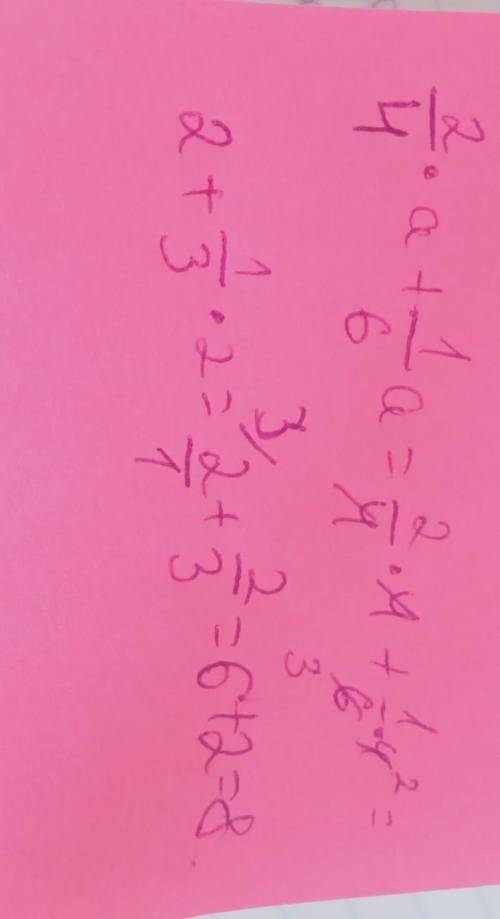 2/4 · a + 1/6 a = 2/4 · 4 + 1/6 3 · 4 2 =
2 + 1/3 · 2 = 3/ 2/1 + 2/3 = 6 + 2 = 8.